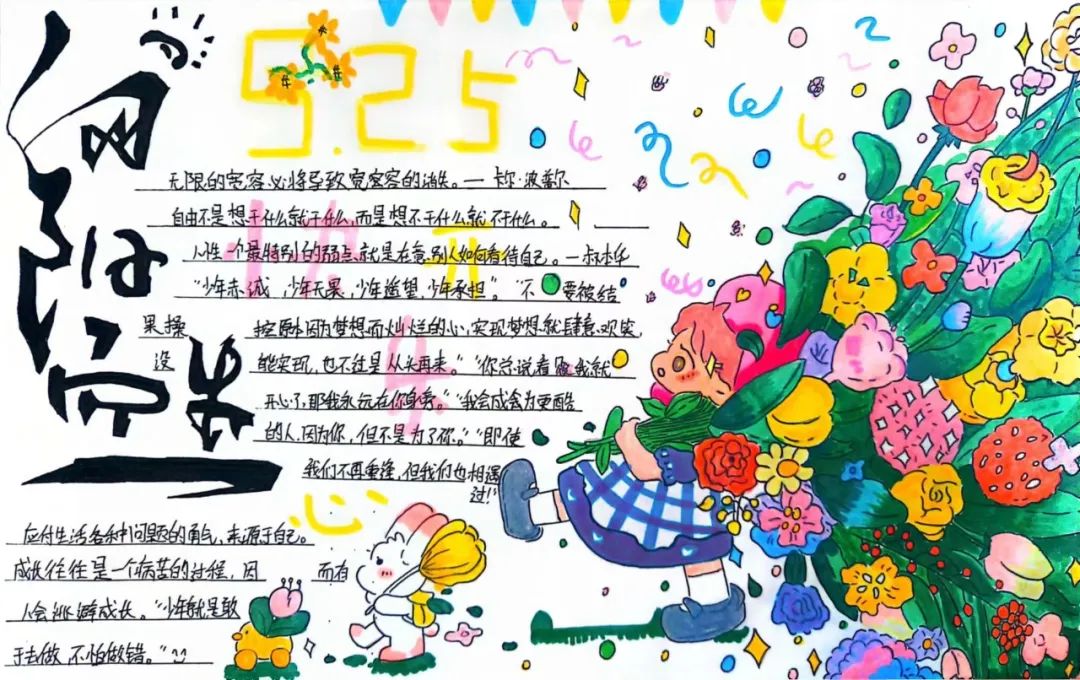 5.25
无限的宽容,必将导致宽容的消失。— 卡尔·波普尔
自由不是想干什么就干什么,而是想不干什么就不干什么。
人性一个最特别的弱点,就是在意别人如何看待自己。—叔本华
“少年赤诚,少年无畏,少年遥望,少年承担”。“不要被结
果操控原本因为梦想而灿烂的心,实现梦想就肆意欢笑,
没能实现,也不过是从头再来。”“你总说看见我就
开心了,那我永远在你身旁。”“我会成会为更酷
的人,因为你,但不是为了你。”“即使
我们不再重逢,但我们也相遇
过!”
心
应付生活各种问题的勇气,来源于自己。
成长往往是一个痛苦的过程,因而有
人会逃避成长。“少年就是敢
于去做,不怕做错。”